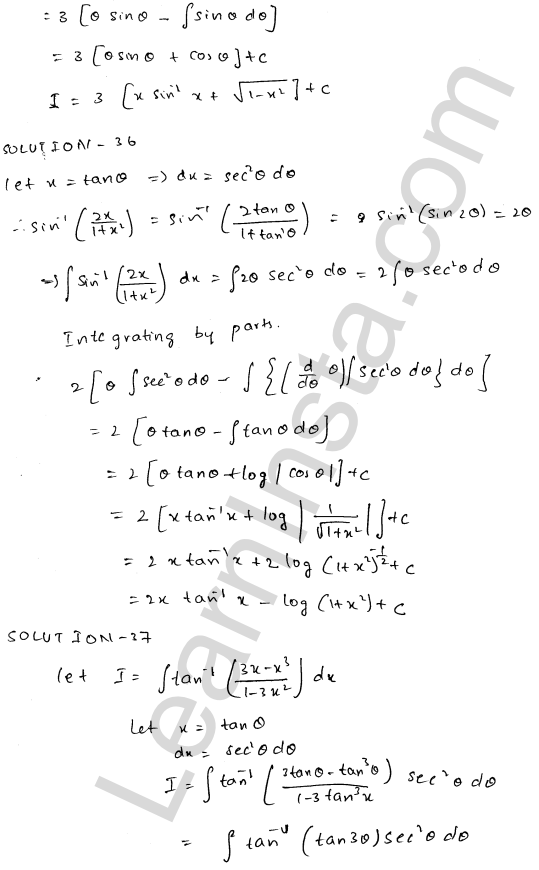 = 3 [θ sinθ - ∫sinθ dθ]
= 3 [θsinθ + cosθ]+c
I = 3 [x sin⁻¹ x + √1-x²]+c
SOLUTION-36
let x = tanθ => dx = sec²θ dθ
∴ sin⁻¹ (2x/1+x²) = sin⁻¹ (2tanθ/1+tan²θ) = sin⁻¹(sin2θ) = 2θ
=> ∫sin⁻¹ (2x/1+x²) dx = ∫2θ sec²θ dθ = 2∫θ sec²θ dθ
Integrating by parts.
2 [θ ∫sec²θdθ - ∫{(d/dθ θ)∫sec²θ dθ} dθ]
= 2 [θ tanθ - ∫tanθdθ]
= 2 [θ tanθ +log |cosθ|]+c
= 2 [x tan⁻¹x + log |1/√1+x²|]+c
= 2 x tan⁻¹x + 2 log (1+x²)^-1/2 + c
= 2x tan⁻¹ x - log (1+x²) + c
SOLUTION-37
let I = ∫tan⁻¹ (3x-x³/1-3x²) dx
Let x = tanθ
dx = sec²θdθ
I = ∫tan⁻¹ (3tanθ-tan³θ/1-3tan²x) sec²θ dθ
= ∫ tan⁻¹ (tan3θ) sec²θ dθ
LearnInsta.com